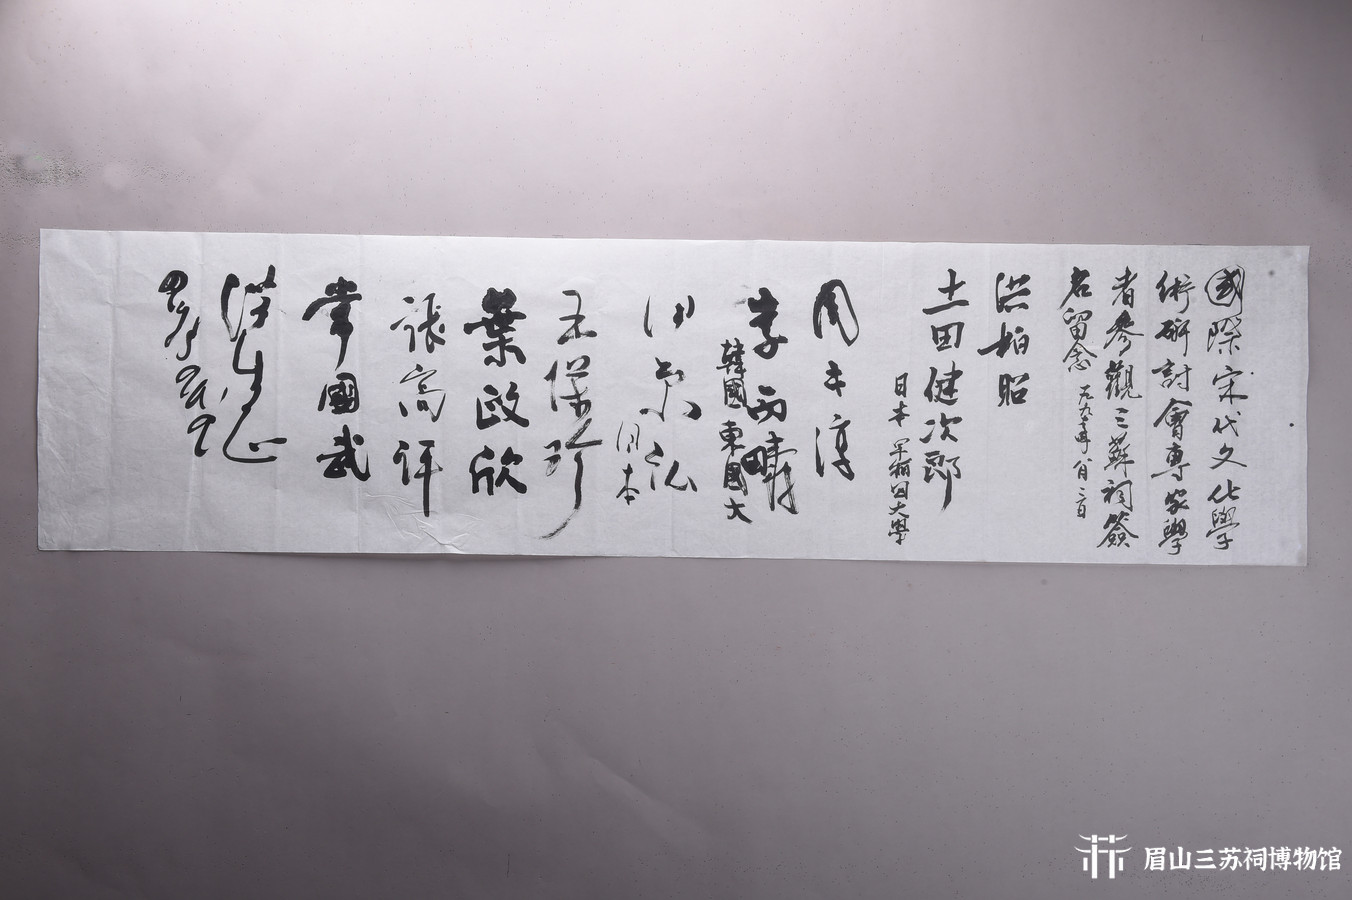 國際宋代文化學
術研討會專家學
者參觀三蘇祠簽
名留念 一九九一年八月二日
洪柏昭
土田健次郎
日本 早稲田大學
李丙疇
韓國東國大
日本
王保珍
葉政欣
張高評
常國武
眉山三苏祠博物馆